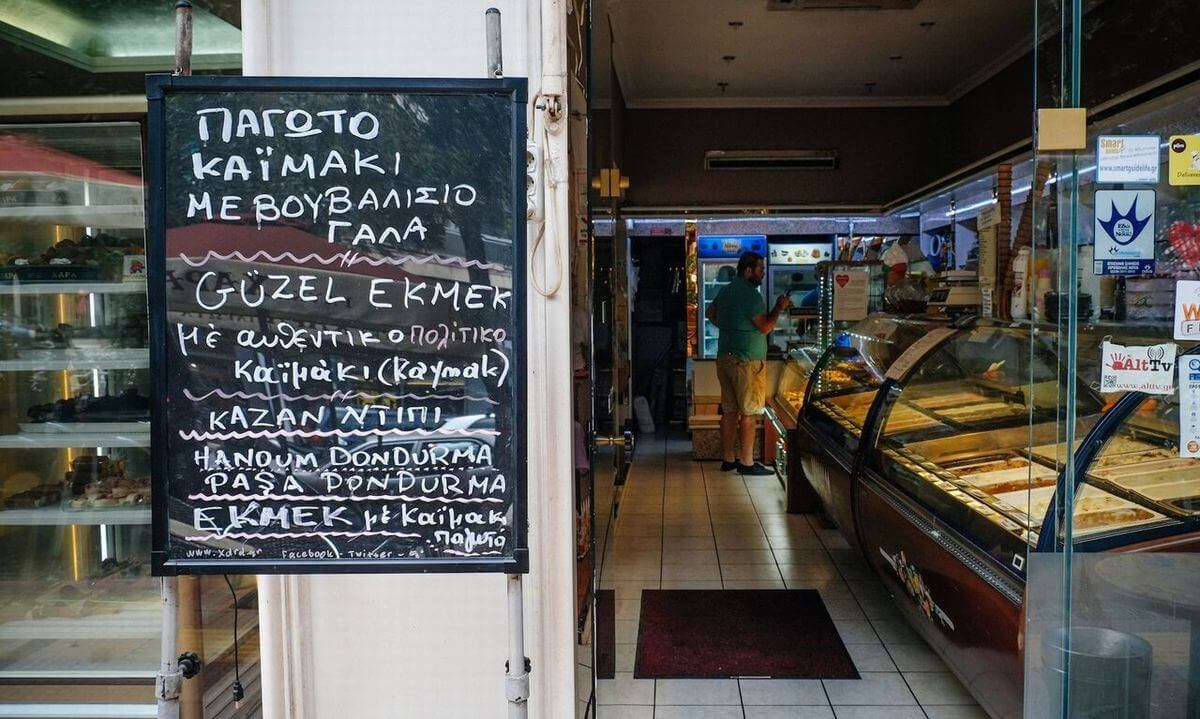 ΠΑΓΩΤΟ
ΚΑΪΜΑΚΙ
ΜΕ ΒΟΥΒΑΛΙΣΙΟ
ΓΑΛΑ
GÜZEL EKMEK
μὲ αυθεντικο πολίτικο
καϊμάκι (kaymak)
ΚΑΖΑΝ ΝΤΙΠΙ
HANOUM DONDURMA
PAŞA DONDURMA
EKMEK μὲ καϊμάκι
παγωτο
www.xdrd.gr Facebook - Twitter -
ΧΑΡΑ
Smart
www.smartguidelife.gr
AltTv
www.alttv.gr